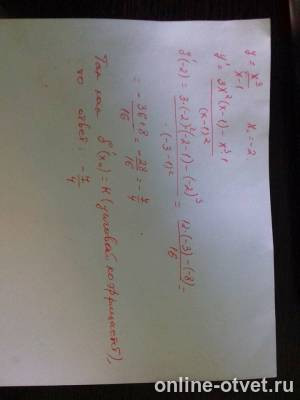 y = x³/(x-1)    x₀ = -2
y' = (3x²(x-1) - x³·1)/(x-1)²
y'(-2) = (3·(-2)²(-2-1) - (-2)³)/(-3-1)² = (12·(-3) - (-8))/16 =
= (-36+8)/16 = -28/16 = -7/4
Так как y'(x₀) = K (угловой коэффициент),
то ответ: -7/4
online-otvet.ru